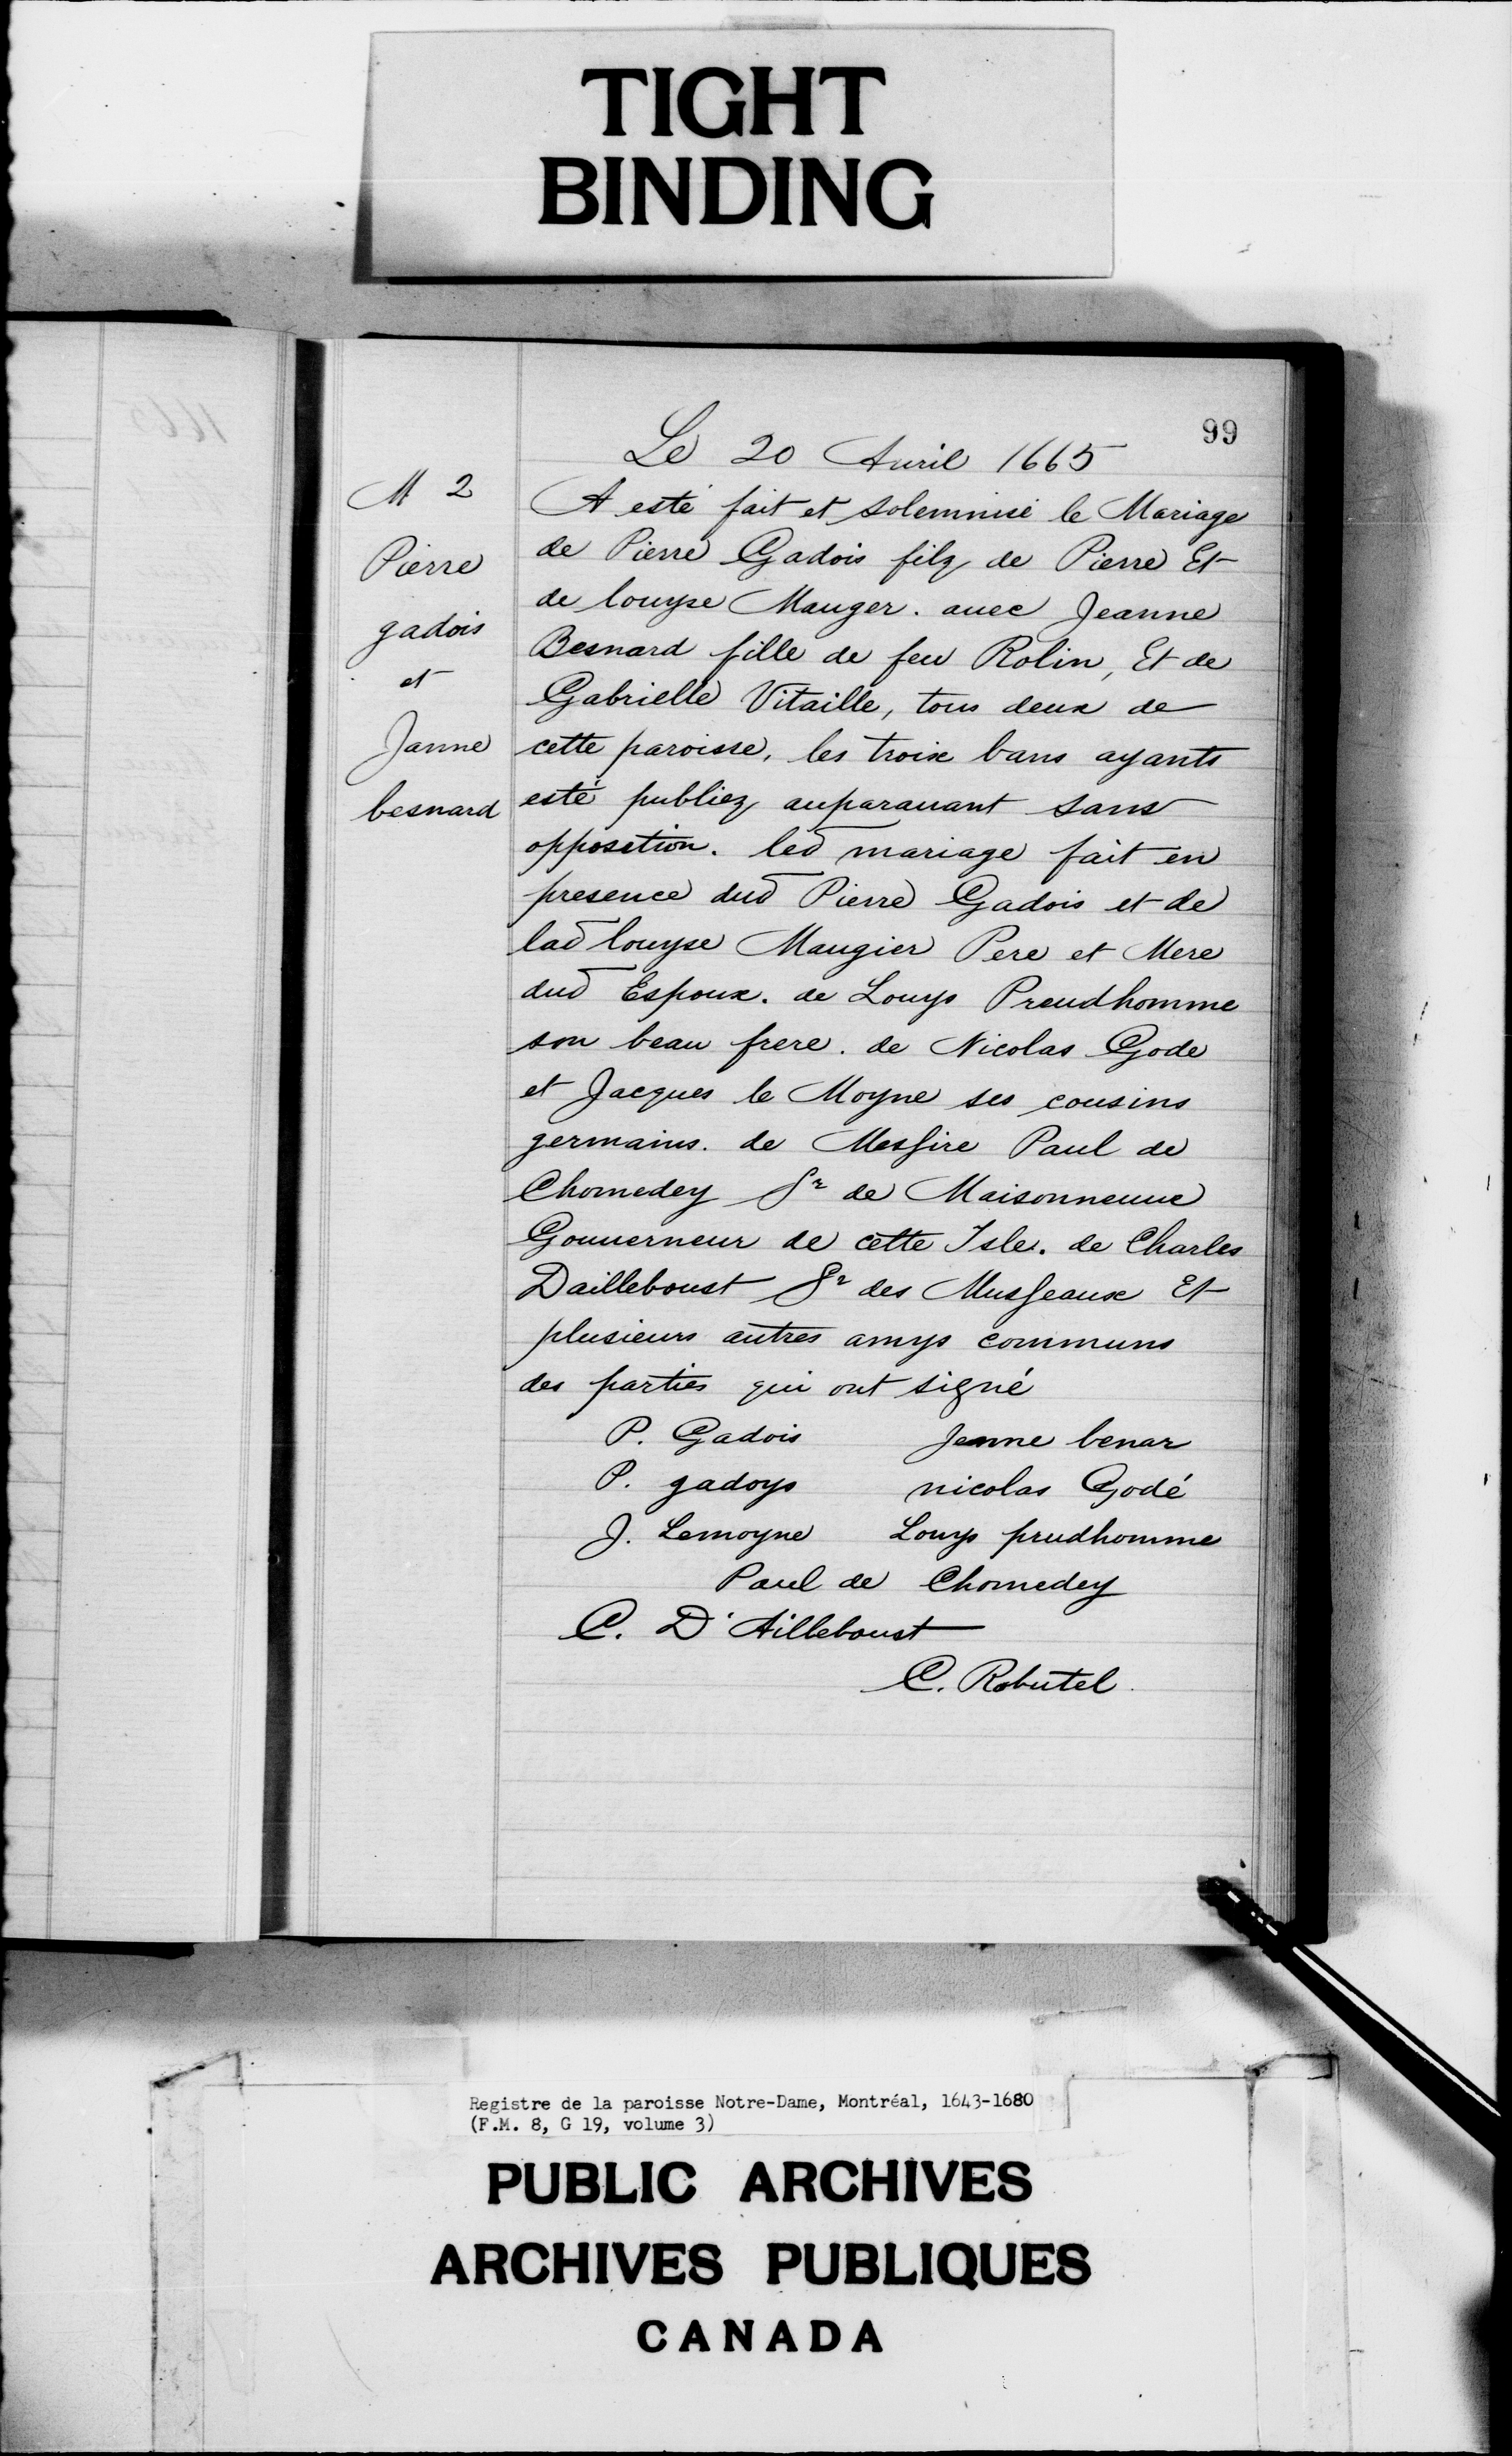 TIGHT
BINDING
99
Le 20 Auril 1665
M 2
Pierre
gadois
et
Janne
besnard
A esté fait et solemnisé le Mariage
de Pierre Gadois filz de Pierre Et
de louyse Mauger. auec Jeanne
Besnard fille de feu Rolin, Et de
Gabrielle Vitaille, tous deux de
cette paroisse, les troix bans ayants
esté publiez auparauant sans
opposition. led mariage fait en
presence dud Pierre Gadois et de
lad louyse Maugier Pere et Mere
dud Espoux. de Louys Preudhomme
son beau frere. de Nicolas Gode
et Jacques le Moyne ses cousins
germains. de Messire Paul de
Chomedey Sr de Maisonneuue
Gouuerneur de cette Isle. de Charles
Dailleboust Sr des Musseaux Et
plusieurs autres amys communs
des parties qui ont signé
P. Gadois Jeanne benar
P. gadoys nicolas Godé
J. Lemoyne Louys prudhomme
Paul de Chomedey
C. D'Ailleboust
C. Robutel.
Registre de la paroisse Notre-Dame, Montréal, 1643-1680
(F.M. 8, G 19, volume 3)
PUBLIC ARCHIVES
ARCHIVES PUBLIQUES
CANADA